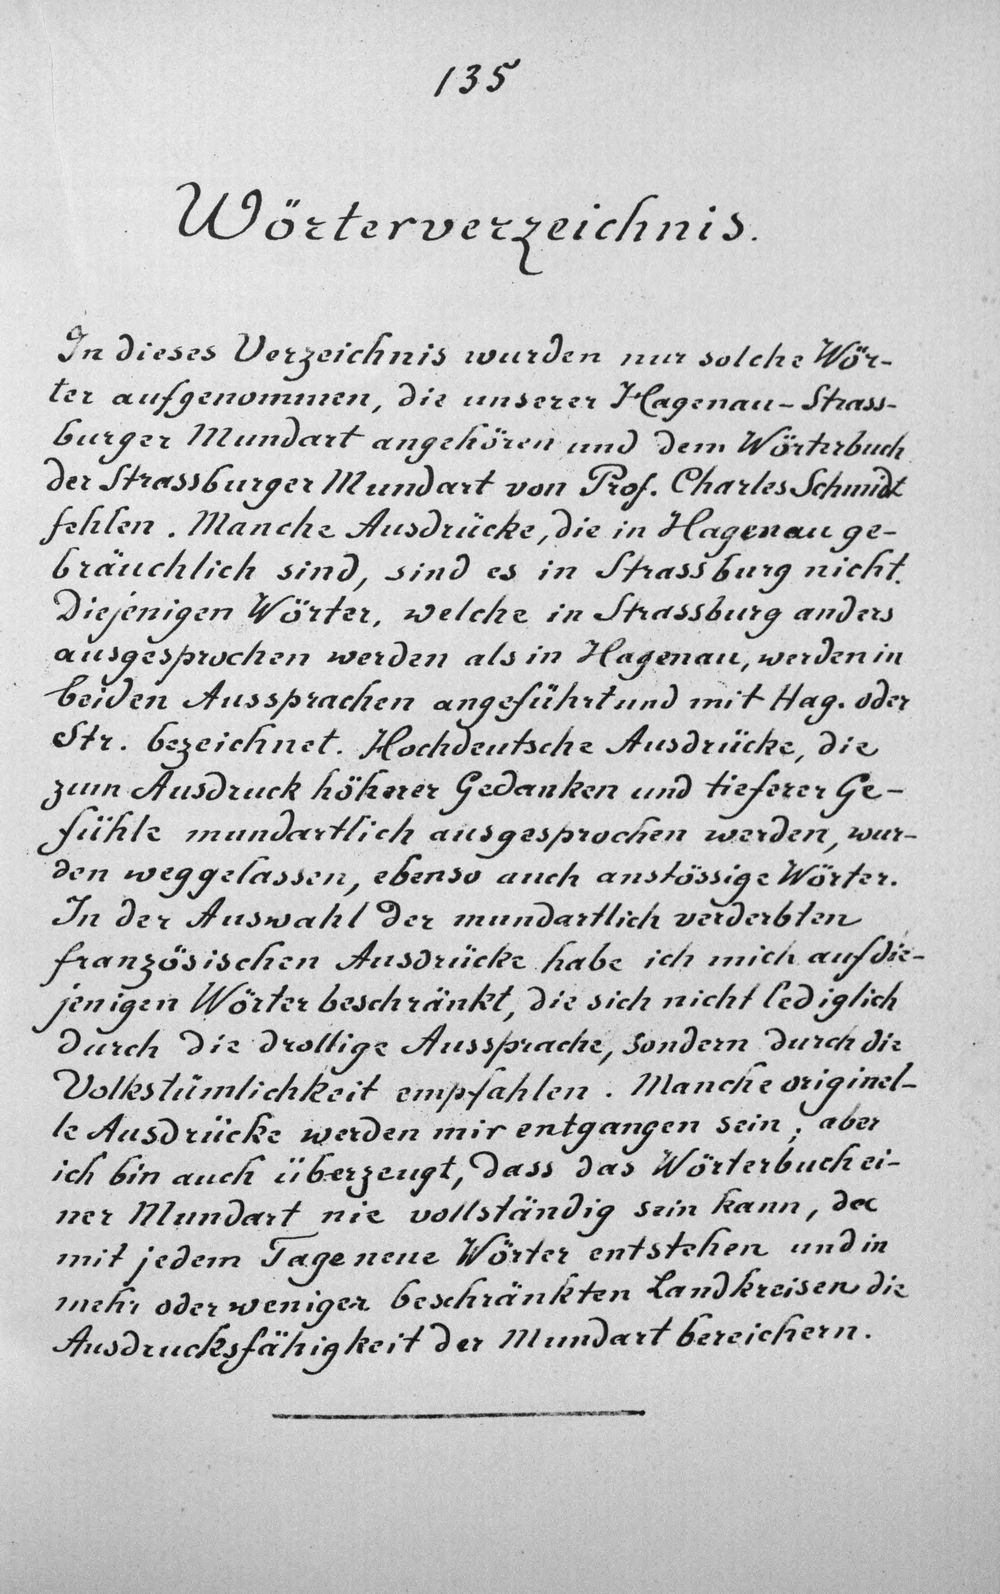 135
Wörterverzeichnis.
In dieses Verzeichnis wurden nur solche Wör-
ter aufgenommen, die unserer Hagenau-Strass-
burger Mundart angehören und dem Wörterbuch
der Strassburger Mundart von Prof. Charles Schmidt
fehlen. Manche Ausdrücke, die in Hagenau ge-
bräuchlich sind, sind es in Strassburg nicht.
Diejenigen Wörter, welche in Strassburg anders
ausgesprochen werden als in Hagenau, werden in
beiden Aussprachen angeführt und mit Hag. oder
Str. bezeichnet. Hochdeutsche Ausdrücke, die
zum Ausdruck höherer Gedanken und tieferer Ge-
fühle mundartlich ausgesprochen werden, wur-
den weggelassen, ebenso auch anstössige Wörter.
In der Auswahl der mundartlich verderbten
französischen Ausdrücke habe ich mich auf die-
jenigen Wörter beschränkt, die sich nicht lediglich
durch die drollige Aussprache, sondern durch die
Volkstümlichkeit empfahlen. Manche originel-
le Ausdrücke werden mir entgangen sein; aber
ich bin auch überzeugt, dass das Wörterbuch ei-
ner Mundart nie vollständig sein kann, da
mit jedem Tage neue Wörter entstehen und in
mehr oder weniger beschränkten Landkreisen die
Ausdrucksfähigkeit der Mundart bereichern.